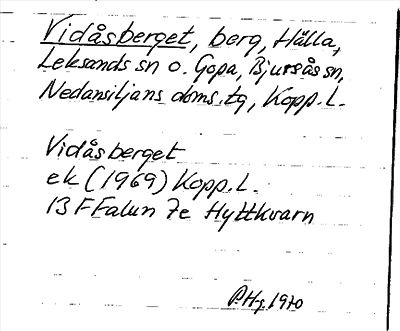 Vidåsberget, berg, Hälla,
Leksands sn o. Gopa, Bjursås sn,
Nedansiljans doms.tg, Kopp.l.
Vidåsberget
ek (1969) Kopp.l.
13 F Falun 7e Hyttkvarn
P.Hg. 1970